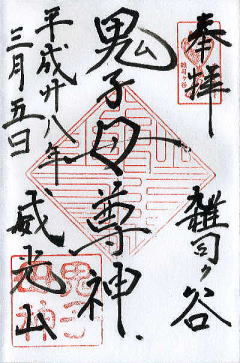 奉拝
雑司ヶ谷
鬼子母尊神
威光山
平成廿八年
三月五日